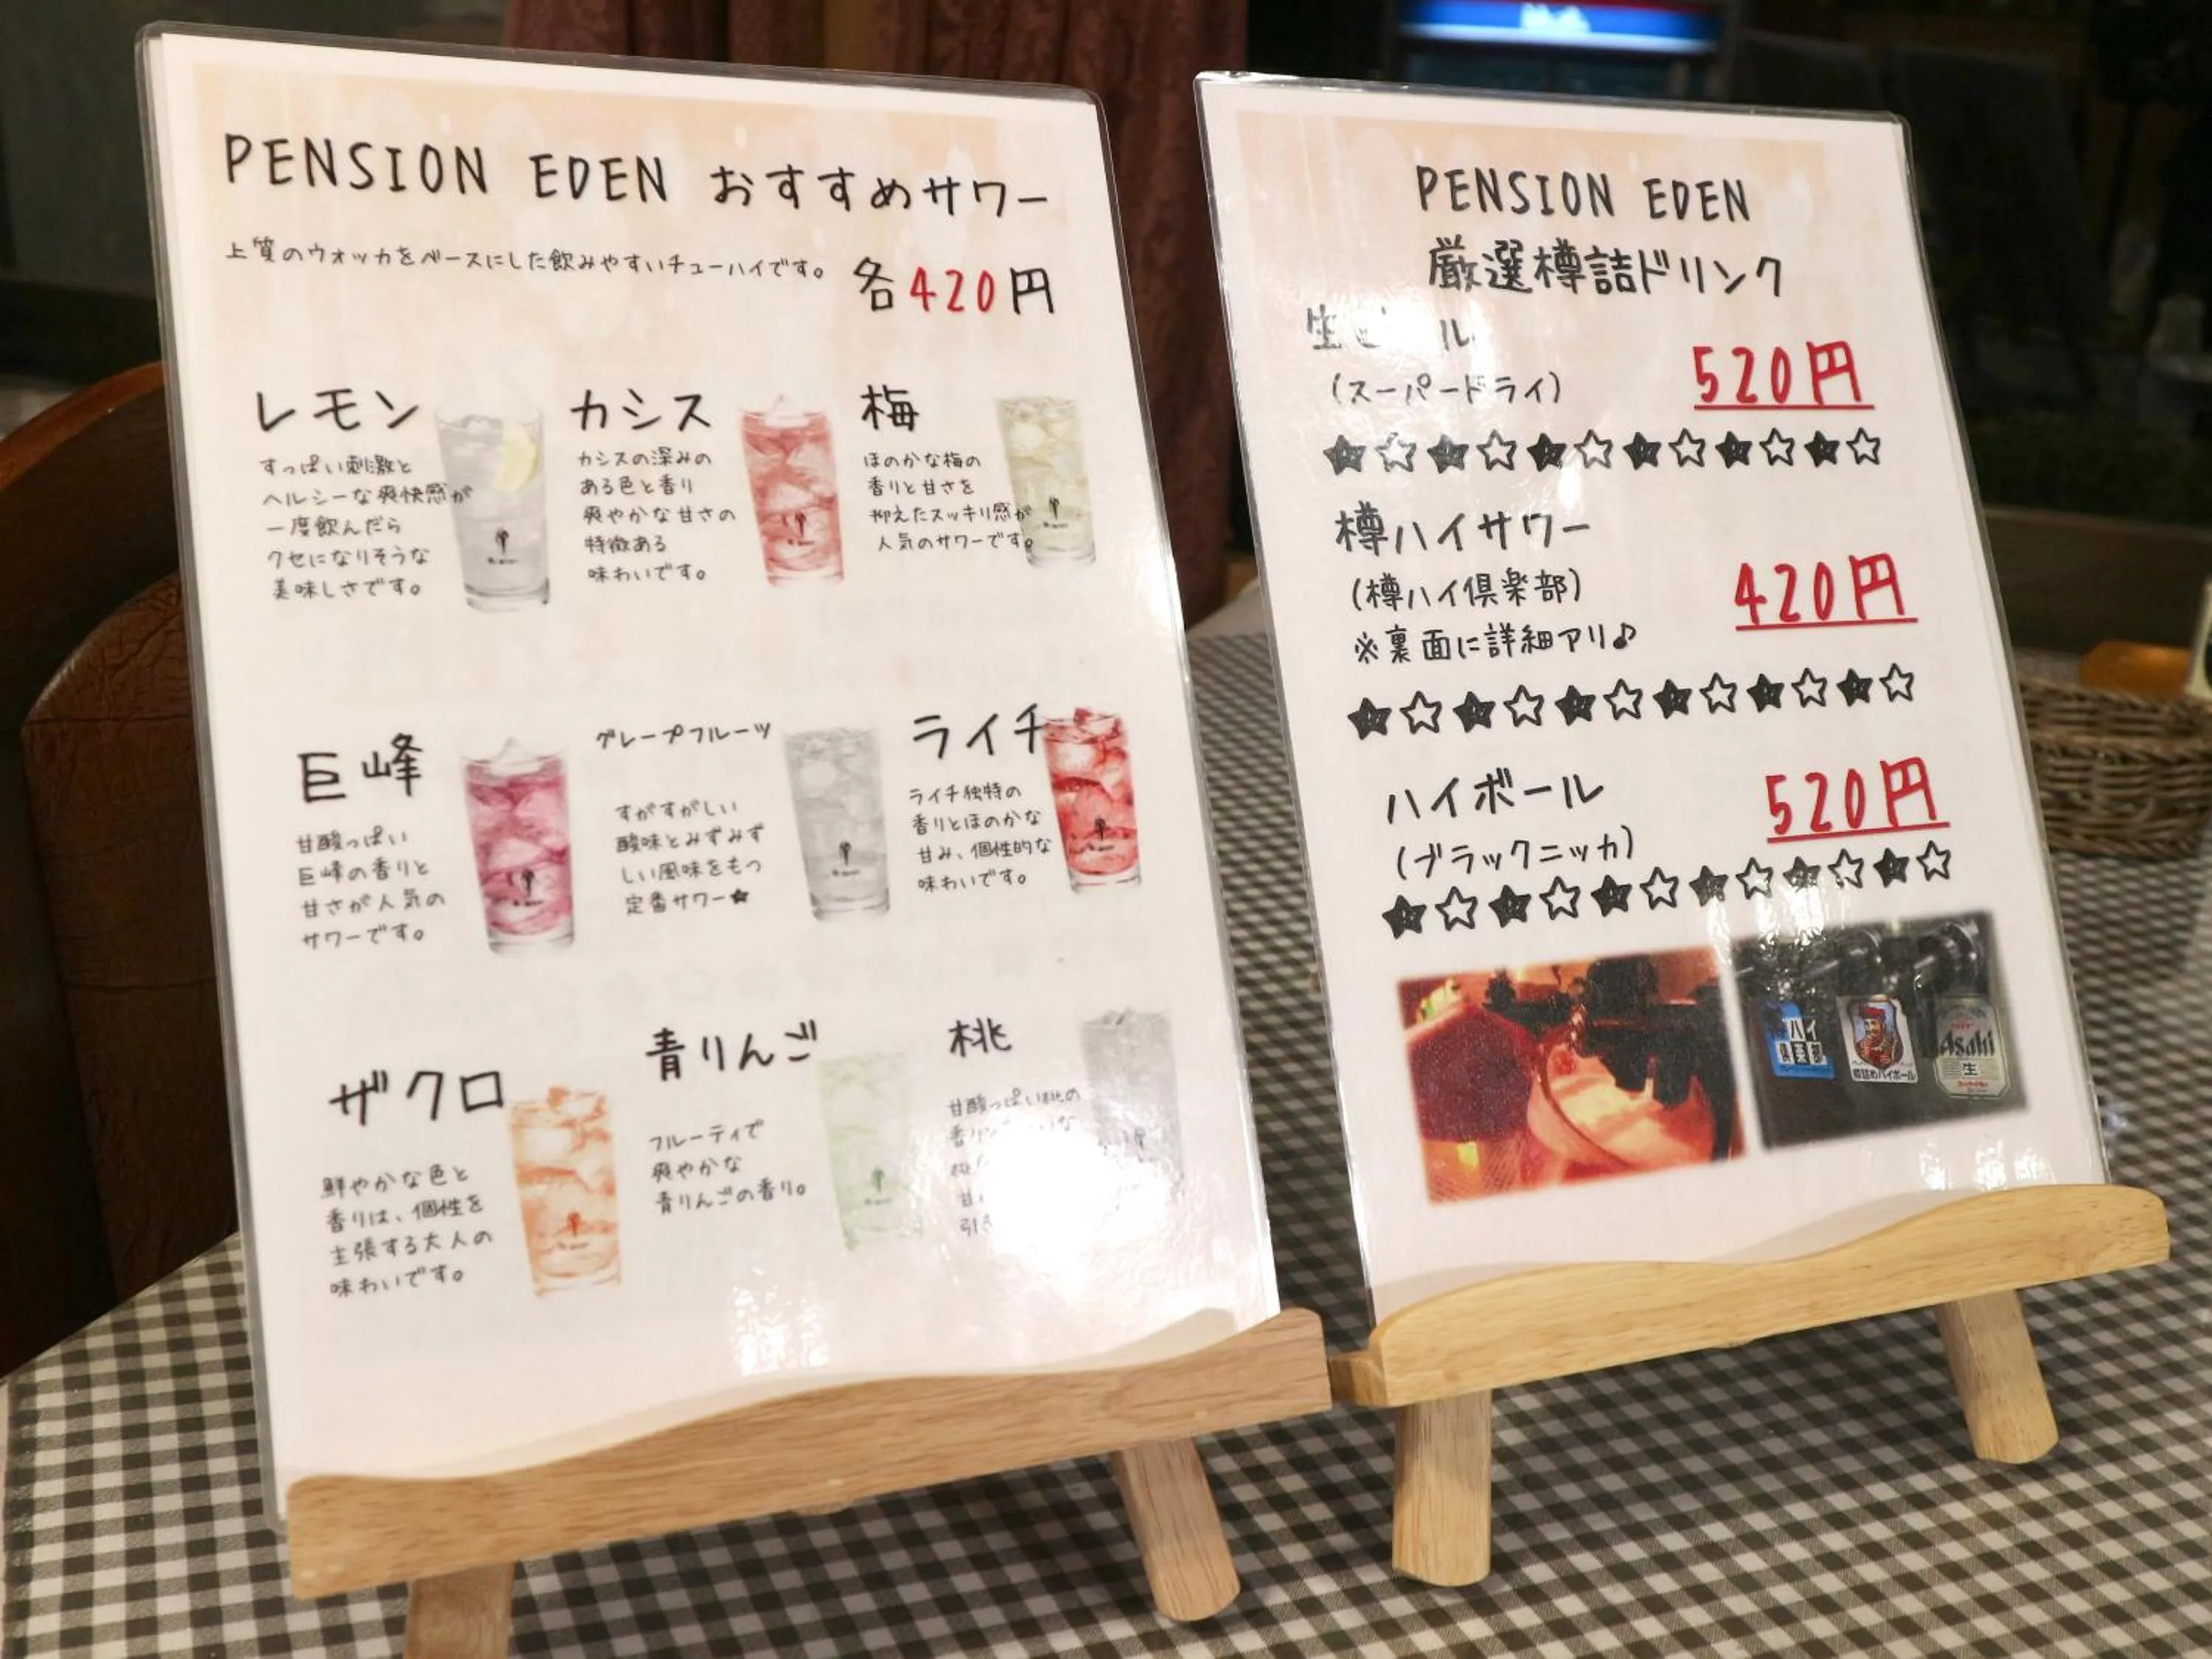 PENSION EDEN おすすめサワー
上質のウォッカをベースにした飲みやすいチューハイです。
各420円
レモン
すっぱい刺激と
ヘルシーな爽快感が
一度飲んだら
クセになりそうな
美味しさです。
カシス
カシスの深みの
ある色と香り
爽やかな甘さの
特徴ある
味わいです。
梅
ほのかな梅の
香りと甘さを
抑えたスッキリ感が
人気のサワーです。
巨峰
甘酸っぱい
巨峰の香りと
甘さが人気の
サワーです。
グレープフルーツ
すがすがしい
酸味とみずみず
しい風味をもつ
定番サワー★
ライチ
ライチ独特の
香りとほのかな
甘み、個性的な
味わいです。
ザクロ
鮮やかな色と
香りは、個性を
主張する大人の
味わいです。
青りんご
フルーティで
爽やかな
青りんごの香り。
桃
甘酸っぱい桃の
PENSION EDEN
厳選樽詰ドリンク
生ビール
(スーパードライ)
520円
★☆★☆★☆★☆★☆★☆
樽ハイサワー
(樽ハイ倶楽部)
※裏面に詳細アリ♪
420円
★☆★☆★☆★☆★☆★☆
ハイボール
(ブラックニッカ)
520円
★☆★☆★☆★☆★☆★☆
ハイ
倶楽部
樽詰めハイボール
Asahi
生